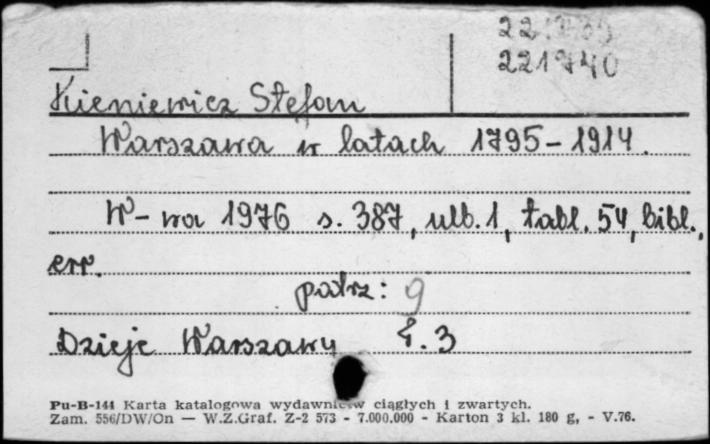 221740
Kieniewicz Stefan
Warszawa w latach 1795-1914.
W-wa 1976 s. 387, ulb. 1, tabl. 54, bibl.,
err.
patrz: 9
Dzieje Warszawy t. 3
Pu-B-144 Karta katalogowa wydawnictw ciągłych i zwartych.
Zam. 556/DW/On — W.Z.Graf. Z-2 573 - 7.000.000 - Karton 3 kl. 180 g, - V.76.